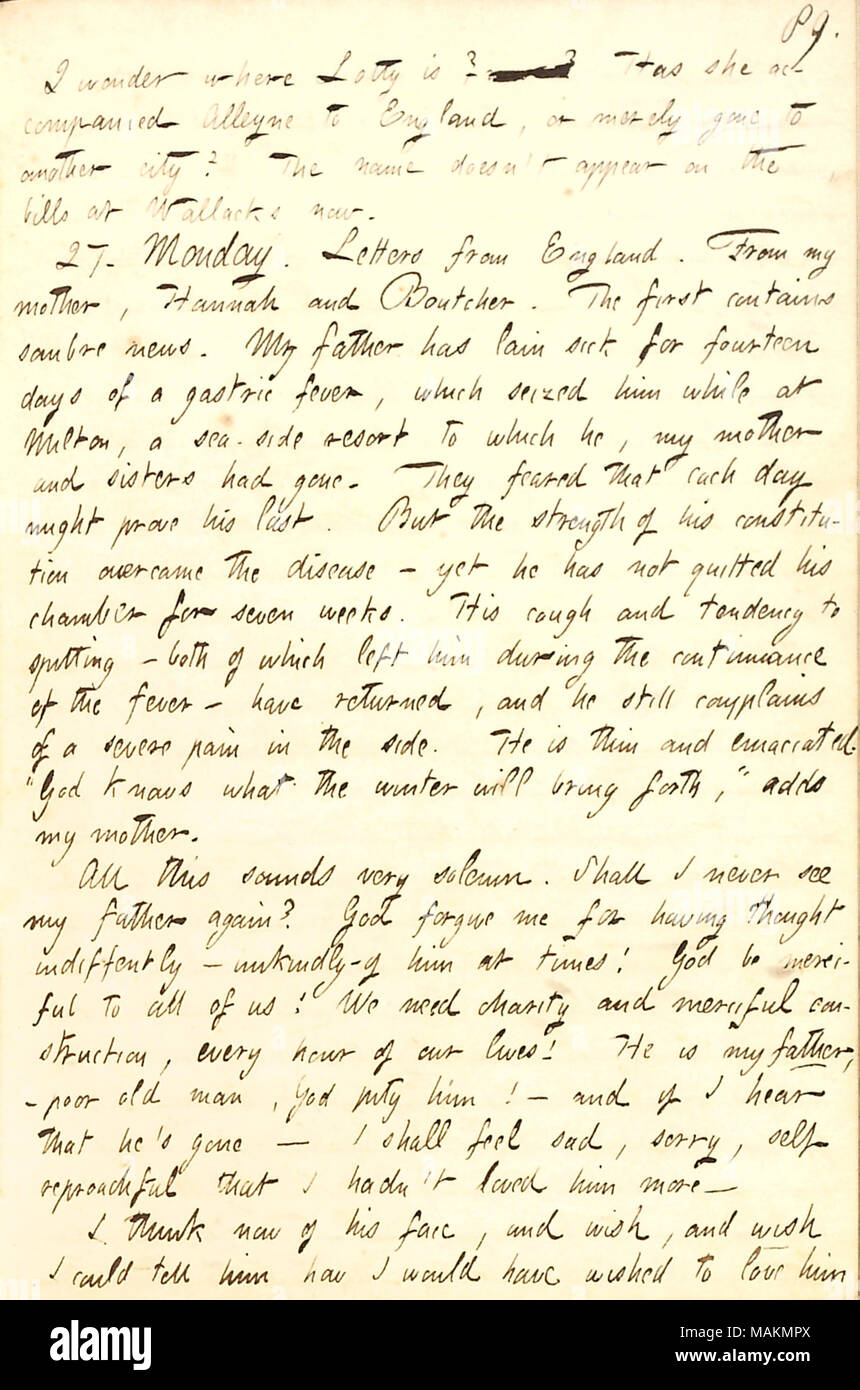 89.
I wonder where Lotty is? ? Has she ac-
companied Alleyne to England, or merely gone to
another city? The name doesn't appear on the
bills at Wallacks now.
27. Monday. Letters from England. From my
mother, Hannah and Boutcher. The first contains
sombre news. My father has lain sick for fourteen
days of a gastric fever, which seized him while at
Milton, a sea-side resort to which he, my mother
and sisters had gone. They feared that each day
might prove his last. But the strength of his constitu-
tion overcame the disease - yet he has not quitted his
chamber for seven weeks. His cough and tendency to
spitting - both of which left him during the continuance
of the fever - have returned, and he still complains
of a severe pain in the side. He is thin and emaciated.
"God knows what the winter will bring forth," adds
my mother.
All this sounds very solemn. Shall I never see
my father again? God forgive me for having thought
indiffently - unkindly - of him at times! God be merci-
ful to all of us! We need charity and merciful con-
struction, every hour of our lives! He is my father,
- poor old man, God pity him! - and if I hear
that he's gone - I shall feel sad, sorry, self
reproachful that I hadn't loved him more -
I think now of his face, and wish, and wish
I could tell him how I would have wished to love him
alamy
Image ID: MAKMPX
www.alamy.com